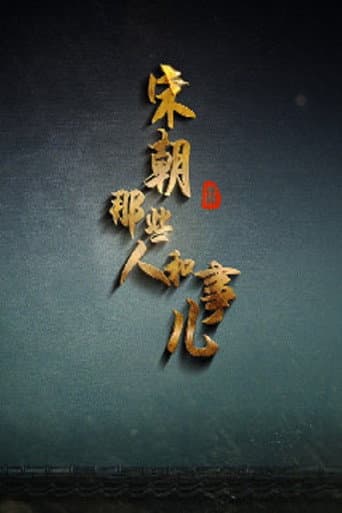 宋朝
那些
人和事儿